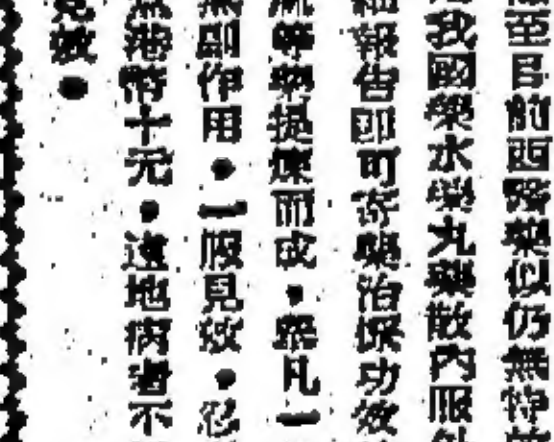 至目前西醫藥似仍無特
我國藥水藥丸藥散內服
報告即可寄藥治療功效
等藥提煉而成●藥凡一
副作用●一服見效●忍
港幣十元●遠地病者不
見效●